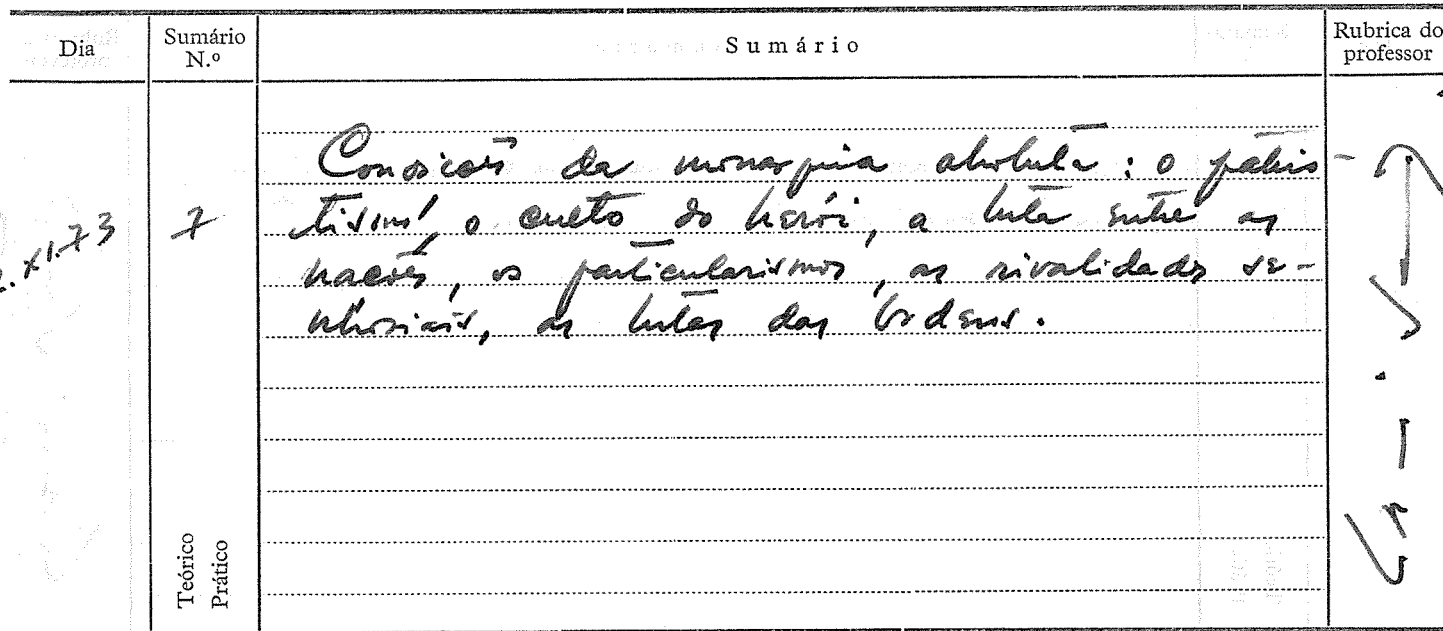 Dia
Sumário N.º
Sumário
Rubrica do professor
.XI.73
7
Condições da monarquia absoluta: o patrio-
tismo, o culto do herói, a luta entre as
nações, os particularismos, as rivalidades se-
nhoriais, as lutas das ordens.
Teórico
Prático